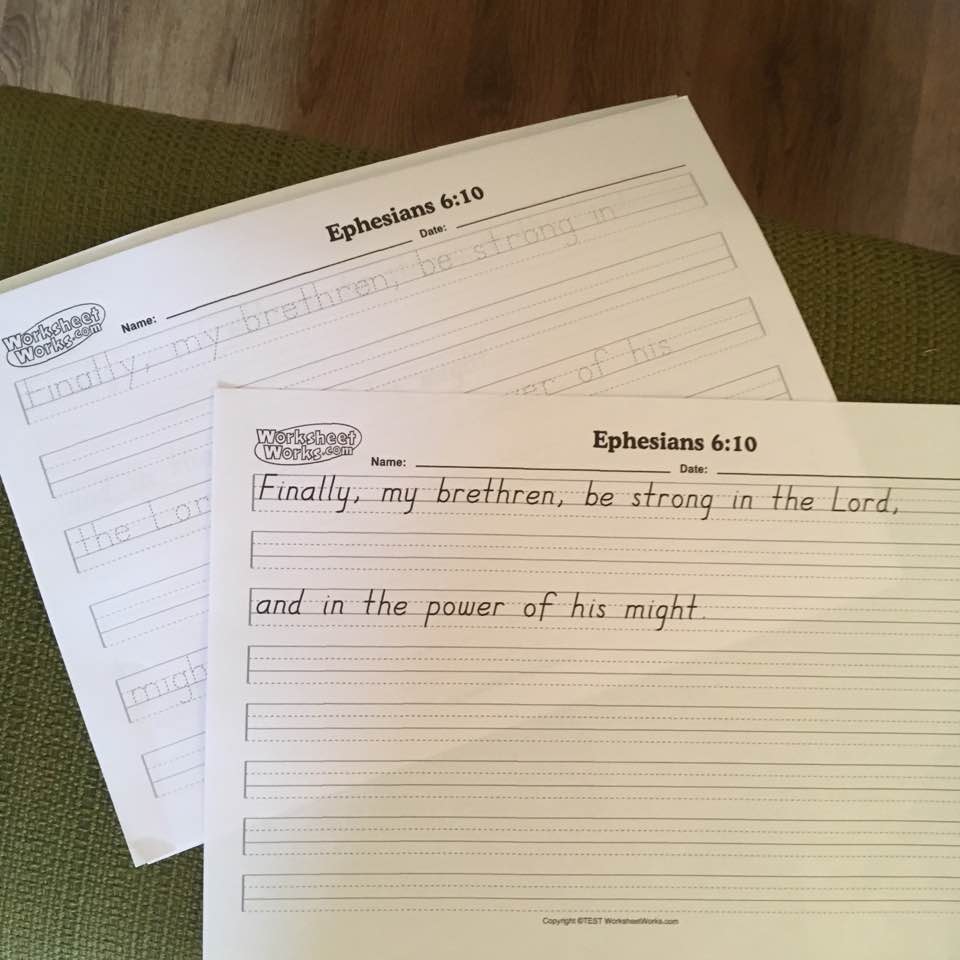 Ephesians 6:10
Worksheet
Works.com
Name: Date:
Finally, my brethren, be strong in
the Lor
er of his
migh
Ephesians 6:10
Worksheet
Works.com
Name: Date:
Finally, my brethren, be strong in the Lord,
and in the power of his might.
Copyright ©TEST WorksheetWorks.com